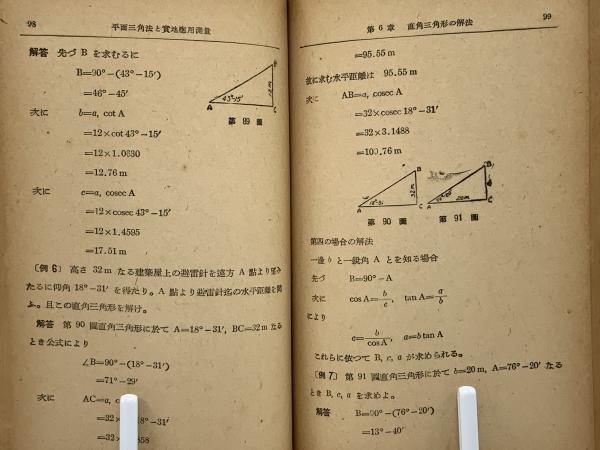 98 平面三角法と實地應用測量
解答 先づ B を求むるに
B=90°−(43°−15′)
=46°−45′
次に b=a, cot A
=12×cot 43°−15′
=12×1.0630
=12.76 m
次に c=a, cosec A
=12×cosec 43°−15′
=12×1.4595
=17.51 m
A 43°-15′ C
第 89 圖
〔例 6〕 高さ 32 m なる建築屋上の避雷針を遠方 A 點より望み
たるに仰角 18°−31′ を得たり。A 點より避雷針迄の水平距離を問
ふ。且この直角三角形を解け。
解答 第 90 圖直角三角形に於て A=18°−31′, BC=32 m なる
とき公式により
∠B=90°−(18°−31′)
=71°−29′
次に AC=a,
=32 18°−31′
=32 858
第 6 章 直角三角形の解法 99
=95.55 m
故に求む水平距離は 95.55 m
次に AB=a, cosec A
=32×cosec 18°−31′
=32×3.1488
=100.76 m
A B C 32m
第 90 圖
A B C
第 91 圖
第四の場合の解法
一邊 b と一鋭角 A とを知る場合
先づ B=90°−A
次に cos A=b/c, tan A=a/b
により
c=b/cos A, a=b tan A
これらに依つて B, c, a が求められる。
〔例 7〕 第 91 圖直角三角形に於て b=20 m, A=76°−20′ なる
とき B, c, a を求めよ。
解答 B=90°−(76°−20′)
=13°−40′